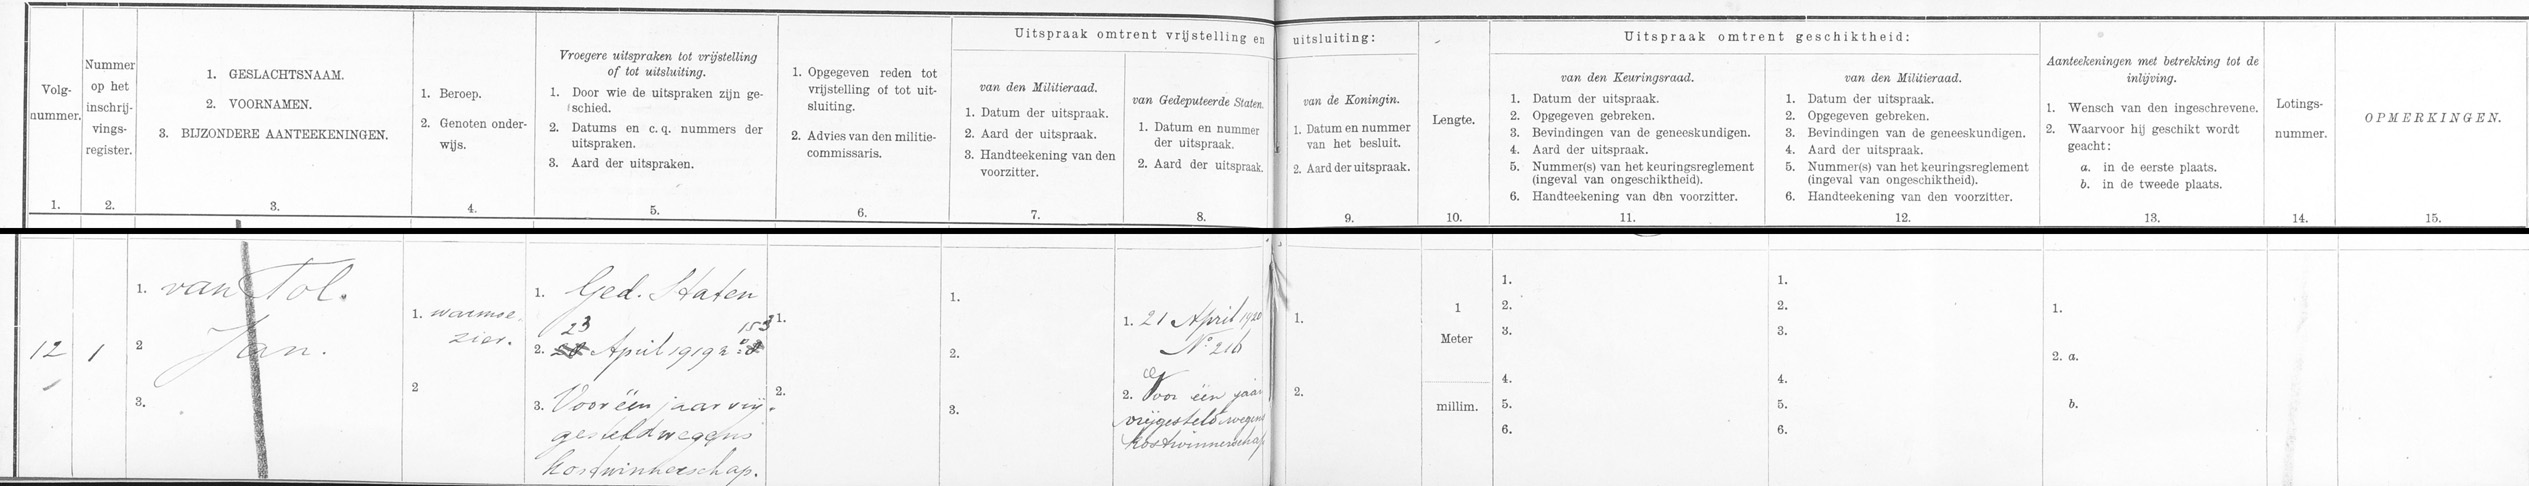 Volg-
nummer.
1.
Nummer
op het
inschrij-
vings-
register.
2.
1. GESLACHTSNAAM.
2. VOORNAMEN.
3. BIJZONDERE AANTEEKENINGEN.
3.
1. Beroep.
2. Genoten onder-
wijs.
4.
Vroegere uitspraken tot vrijstelling
of tot uitsluiting.
1. Door wie de uitspraken zijn ge-
schied.
2. Datums en c.q. nummers der
uitspraken.
3. Aard der uitspraken.
5.
1. Opgegeven reden tot
vrijstelling of tot uit-
sluiting.
2. Advies van den militie-
commissaris.
6.
Uitspraak omtrent vrijstelling en uitsluiting:
van den Militieraad.
1. Datum der uitspraak.
2. Aard der uitspraak.
3. Handteekening van den
voorzitter.
7.
van Gedeputeerde Staten.
1. Datum en nummer
der uitspraak.
2. Aard der uitspraak.
8.
van de Koningin.
1. Datum en nummer
van het besluit.
2. Aard der uitspraak.
9.
Lengte.
10.
Uitspraak omtrent geschiktheid:
van den Keuringsraad.
1. Datum der uitspraak.
2. Opgegeven gebreken.
3. Bevindingen van de geneeskundigen.
4. Aard der uitspraak.
5. Nummer(s) van het keuringsreglement
(ingeval van ongeschiktheid).
6. Handteekening van den voorzitter.
11.
van den Militieraad.
1. Datum der uitspraak.
2. Opgegeven gebreken.
3. Bevindingen van de geneeskundigen.
4. Aard der uitspraak.
5. Nummer(s) van het keuringsreglement
(ingeval van ongeschiktheid).
6. Handteekening van den voorzitter.
12.
Aanteekeningen met betrekking tot de
inlijving.
1. Wensch van den ingeschrevene.
2. Waarvoor hij geschikt wordt
geacht:
a. in de eerste plaats.
b. in de tweede plaats.
13.
Lotings-
nummer.
14.
OPMERKINGEN.
15.
12
1
1. van Tol.
2 Jan.
3.
1. warmoe-
zier.
2
1. Ged. Staten
23 153
2. April 1919 n:
3. Voor één jaar vrij-
gesteld wegens
kostwinnerschap.
1.
2.
1.
2.
3.
1. 21 April 1920
No 216
2. Voor één jaar
vrijgesteld wegens
kostwinnerschap
1.
2.
1
Meter
millim.
1.
2.
3.
4.
5.
6.
1.
2.
3.
4.
5.
6.
1.
2. a.
b.